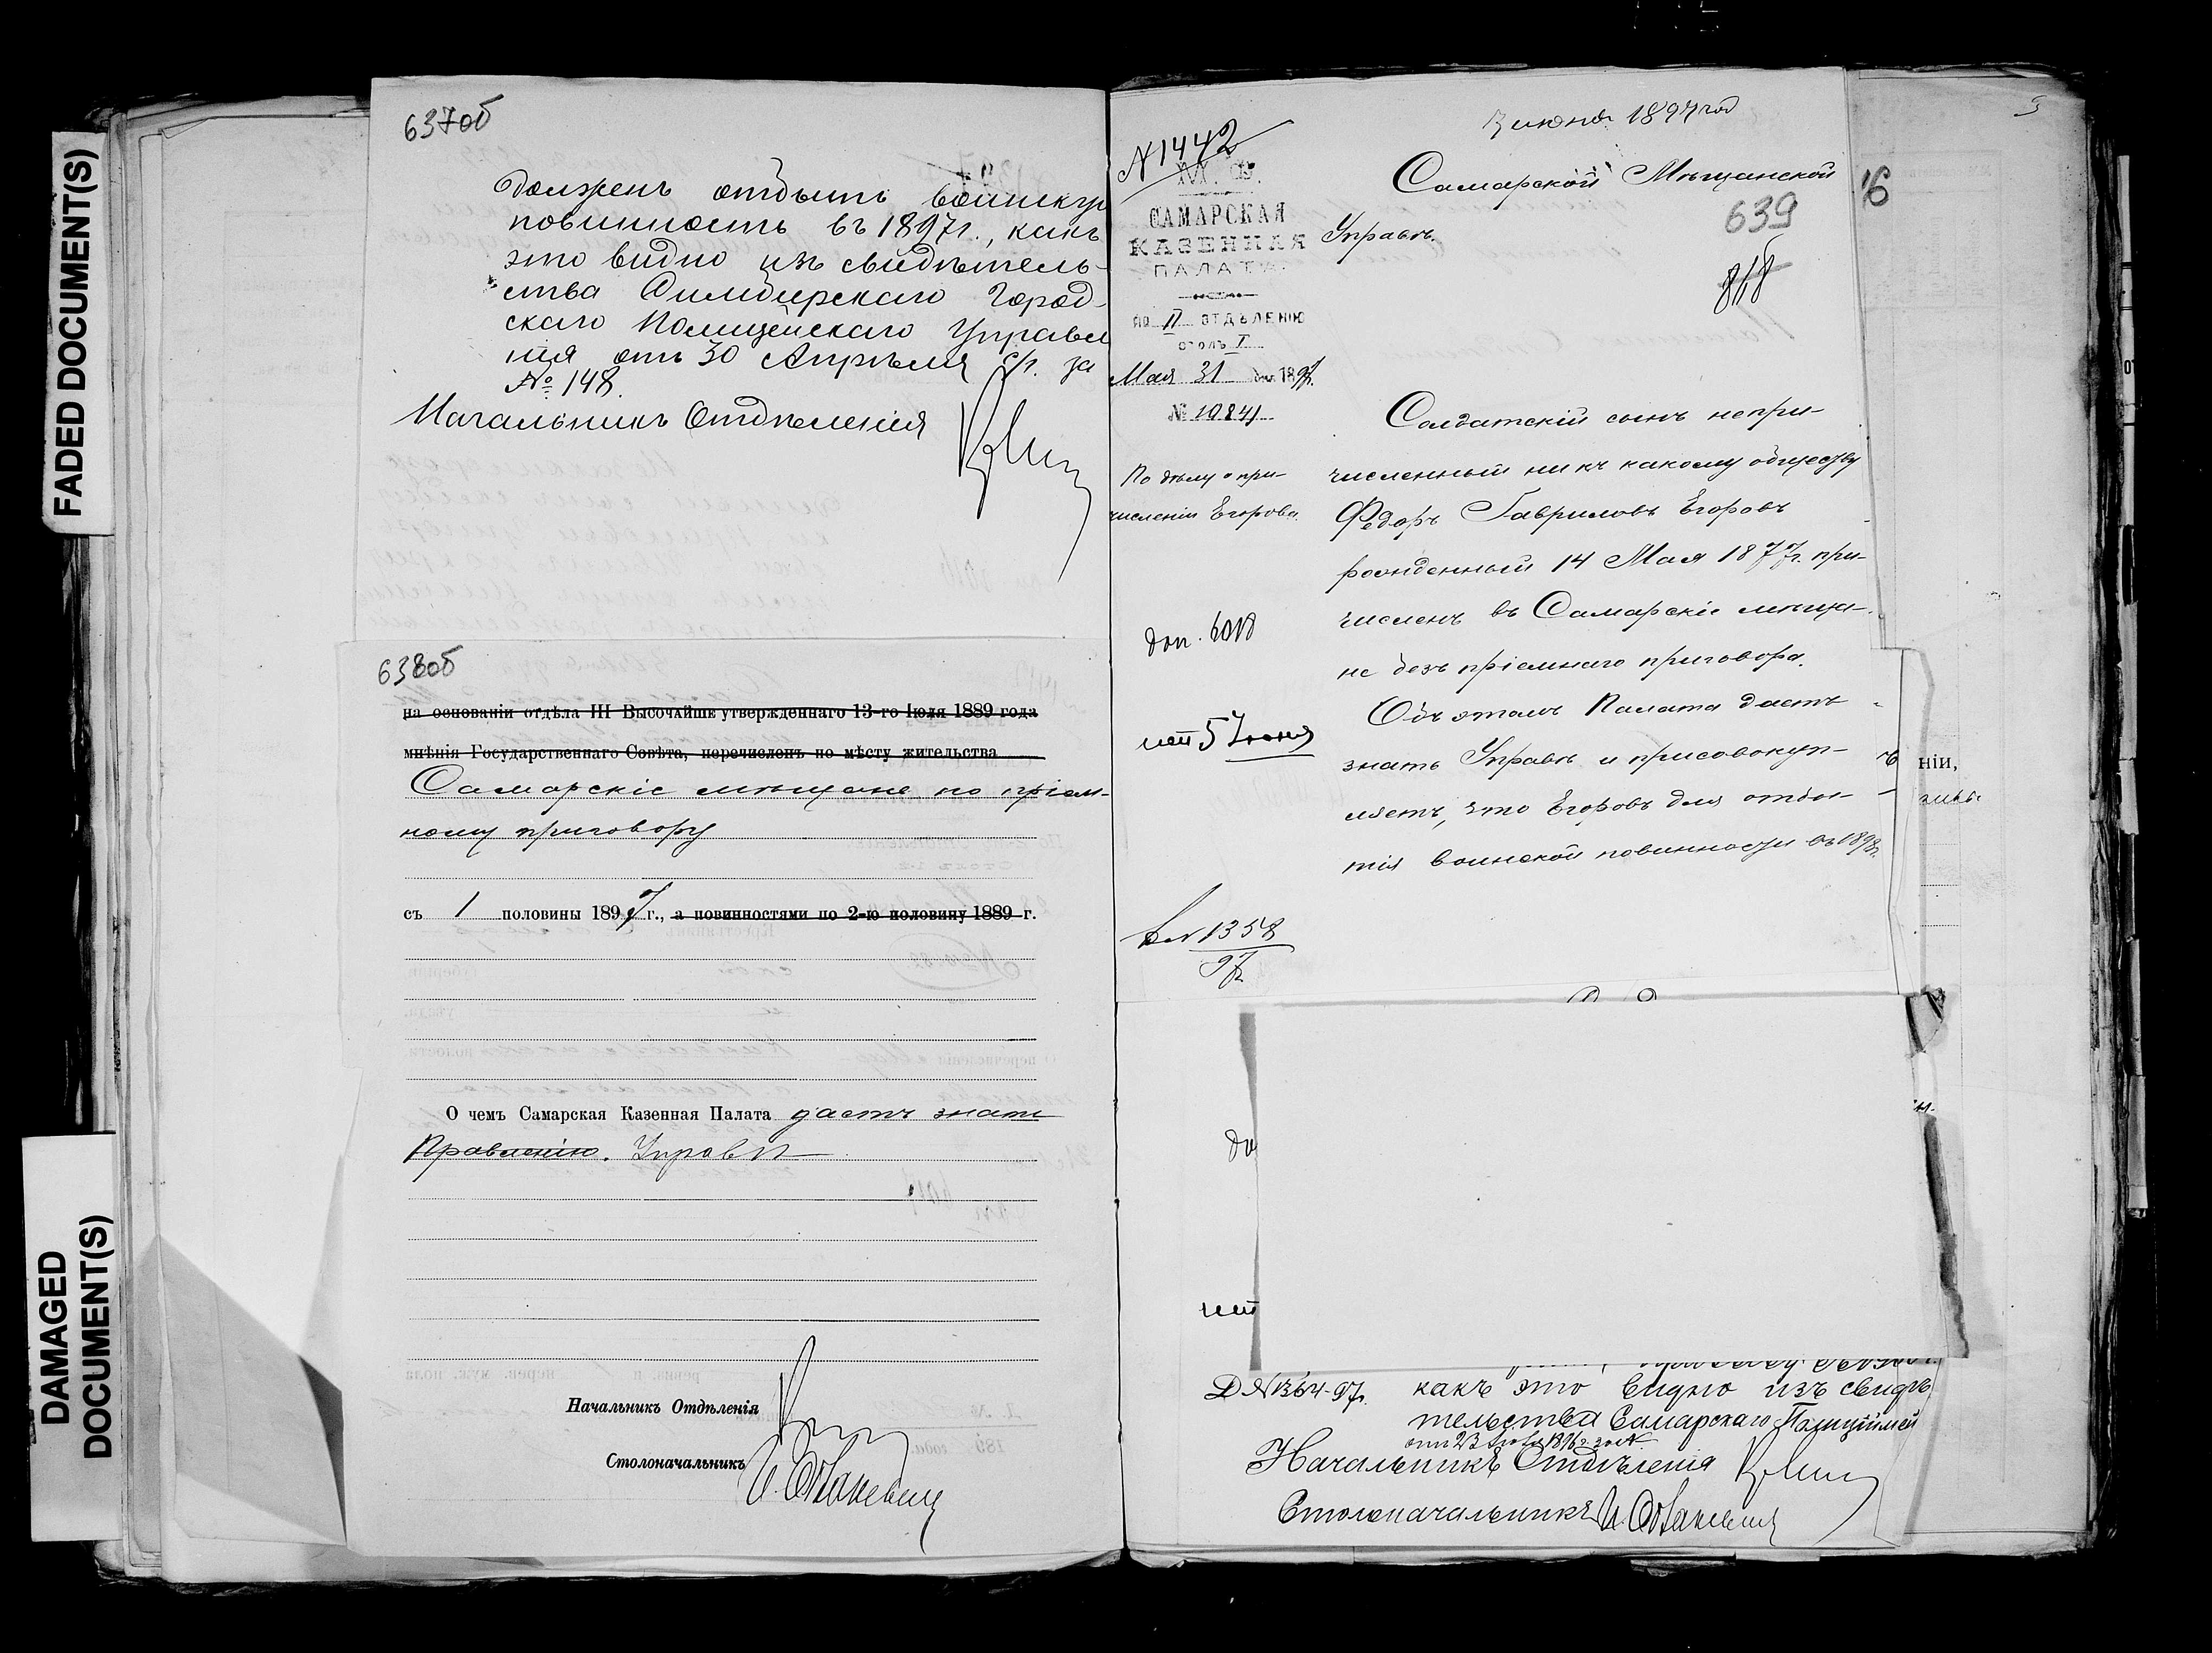 FADED DOCUMENT(S)
DAMAGED
DOCUMENT(S)
637об
долженъ отбыть воинскую
повинность въ 1897г., какъ
это видно изъ свидѣтель-
ства Симбирскаго Город-
скаго Полицейскаго Управле
нія отъ 30 Апрѣля с/г. за
№ 148.
Начальникъ Отдѣленія
638об
на основаніи отдѣла III Высочайше утвержденнаго 13-го Іюля 1889 года
мнѣнія Государственнаго Совѣта, перечисленъ по мѣсту жительства
Самарскіе мѣщане по пріем-
ному приговору
съ 1 половины 1897 г., а повинностями по 2-ю половину 1889 г.
О чемъ Самарская Казенная Палата даетъ знать
Правленію. Управѣ
Начальникъ Отдѣленія
Столоначальникъ
3 июня 1897 год
№ 1442
М. Ф.
САМАРСКАЯ
КАЗЕННАЯ
ПАЛАТА
ПО II ОТДѢЛЕНІЮ
столъ I
Мая 31 дня 1897г.
№ 10841
По дѣлу о при-
численіи Егорова.
Самарской Мѣщанской
Управѣ.
639
818
16
Солдатскій сынъ непри-
численный ни къ какому обществу
Федоръ Гавриловъ Егоровъ
рожденный 14 Мая 1877г. при-
численъ въ Самарскіе мѣща-
не безъ пріемнаго приговора.
Объ этомъ Палата даетъ
знать Управѣ и присовокуп-
ляетъ, что Егоровъ для отбы-
тія воинской повинности въ 1898г.
доп. 6018
исп 5 Іюня
№ 1358
97
ніи,
до
исп
Д № 1364-97г.
какъ это видно изъ свидѣ
тельства Самарскаго
Начальникъ Отдѣленія
Столоначальникъ